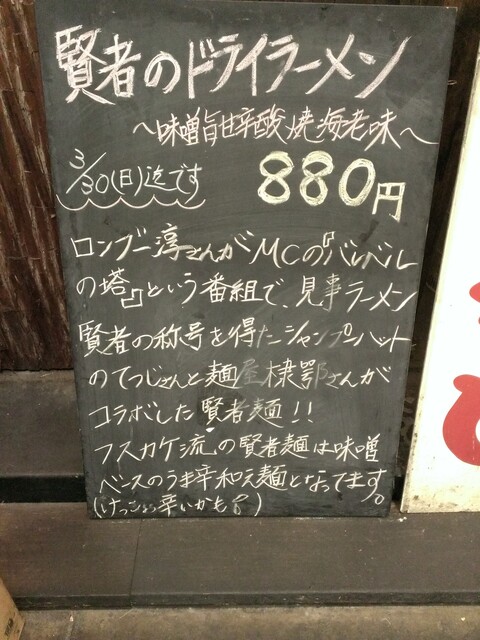 賢者のドライラーメン
～味噌旨甘辛酸焼海老味～
3/30(日)迄です
880円
ロンブー淳さんがMCの『バベル
の塔』という番組で、見事ラーメン
賢者の称号を得たジャンプハット
のてつじさんと麺屋棣鄂さんが
コラボした賢者麺!!
フスカケ流の賢者麺は味噌
ベースのうま辛和え麺となってます。
(けっこう辛いかも